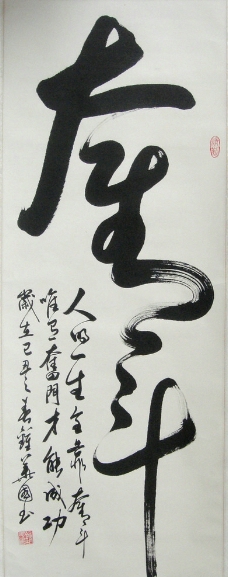 奮斗
人的一生全靠奮斗
唯有奮鬥才能成功
歲在己丑之春國书